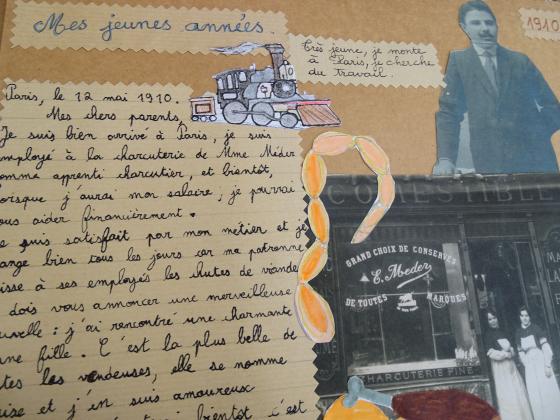 Mes jeunes années.
Très jeune, je monte
à Paris, je cherche
du travail.
1910
Paris, le 12 mai 1910.
Mes chers parents,
Je suis bien arrivé à Paris, je suis
employé à la charcuterie de Mme Méder
comme apprenti charcutier, et bientôt,
lorsque j'aurai mon salaire, je pourrai
vous aider financièrement.
Je suis satisfait par mon métier et je
mange bien tous les jours car ma patronne
laisse à ses employés les chutes de viande
dois vous annoncer une merveilleuse
nouvelle : j'ai rencontré une charmante
jeune fille. C'est la plus belle de
toutes les vendeuses, elle se nomme
et j'en suis amoureux
bientôt c'est
COMESTIBLE
GRAND CHOIX DE CONSERVES
E. Meder
DE TOUTES MARQUES
CHARCUTERIE FINE